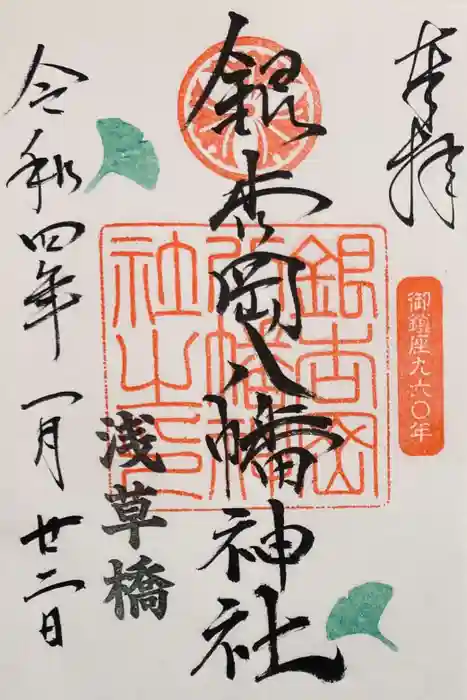 奉拝
御鎮座九六〇年
銀杏岡八幡神社
銀杏岡八幡神社之印
浅草橋
令和四年一月廿二日